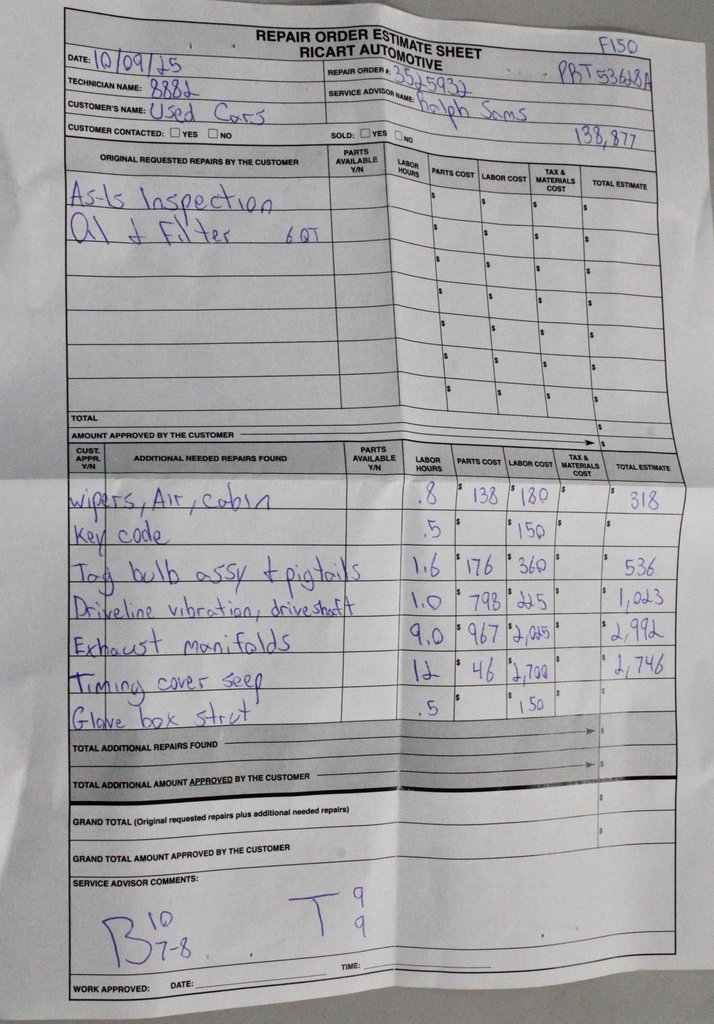 REPAIR ORDER ESTIMATE SHEET
RICART AUTOMOTIVE
F150
DATE: 10/09/25
REPAIR ORDER #: 3525932
PBT53628A
TECHNICIAN NAME: 8882
SERVICE ADVISOR NAME: Ralph Sams
CUSTOMER'S NAME: Used Cars
138,877
CUSTOMER CONTACTED: YES NO SOLD: YES NO
ORIGINAL REQUESTED REPAIRS BY THE CUSTOMER PARTS AVAILABLE Y/N LABOR HOURS PARTS COST LABOR COST TAX & MATERIALS COST TOTAL ESTIMATE
As-Is Inspection $ $ $ $
Oil + Filter 6 QT $ $ $ $
$ $ $ $
$ $ $ $
$ $ $ $
$ $ $ $
$ $ $ $
TOTAL $
AMOUNT APPROVED BY THE CUSTOMER $
CUST. APPR. Y/N ADDITIONAL NEEDED REPAIRS FOUND PARTS AVAILABLE Y/N LABOR HOURS PARTS COST LABOR COST TAX & MATERIALS COST TOTAL ESTIMATE
wipers, Air, cabin .8 $ 138 $ 180 $ $ 318
Key code .5 $ $ 150 $ $
Tag bulb assy + pigtails 1.6 $ 176 $ 360 $ $ 536
Driveline vibration, driveshaft 1.0 $ 798 $ 225 $ $ 1,023
Exhaust manifolds 9.0 $ 967 $ 2,025 $ $ 2,992
Timing cover seep 12 $ 46 $ 2,700 $ $ 2,746
Glove box strut .5 $ $ 150 $ $
TOTAL ADDITIONAL REPAIRS FOUND $
TOTAL ADDITIONAL AMOUNT APPROVED BY THE CUSTOMER $
GRAND TOTAL (Original requested repairs plus additional needed repairs) $
GRAND TOTAL AMOUNT APPROVED BY THE CUSTOMER $
SERVICE ADVISOR COMMENTS:
B 10 7-8 T 9 9
WORK APPROVED: DATE: TIME: